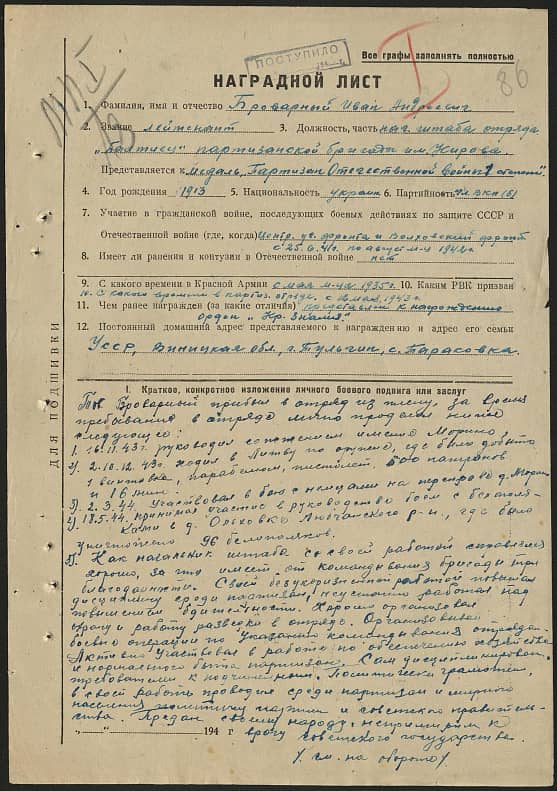 ПОСТУПИЛО
Все графы заполнять полностью
86
НАГРАДНОЙ ЛИСТ
1. Фамилия, имя и отчество Броварный Иван Андреевич
2. Звание лейтенант 3. Должность, часть нач. штаба отряда
„Балтиец" партизанской бригады им. Кирова.
Представляется к медаль „Партизан Отечественной Войны I степени".
4. Год рождения 1913 5. Национальность украин 6. Партийность чл. ВКП(б)
7. Участие в гражданской войне, последующих боевых действиях по защите СССР и
Отечественной войне (где, когда) Центр. уч. фронта и Волховский фронт
с 25.6.41г. по август м-ц 1942г.
8. Имеет ли ранения и контузии в Отечественной войне нет
9. С какого времени в Красной Армии с мая м-ца 1935г. 10. Каким РВК призван
10. С какого времени в партиз. отряде. с мая 1943г.
11. Чем ранее награжден (за какие отличия) представлен к награждению
орден „Кр. Знамя"
12. Постоянный домашний адрес представляемого к награждению и адрес его семьи
УССР, Винницкая обл., г. Тульчин, с. Тарасовка.
ДЛЯ ПОДШИВКИ
I. Краткое, конкретное изложение личного боевого подвига или заслуг
Тов. Броварный прибыл в отряд из плену, за время
пребывания в отряде лично проделал
следующее:
1. 16.11.43г. руководил сожжением имения Морино
2) 2.10.12.43г. ходил в Литву по оружие, где было добыто
1 винтовка, парабелюм, пистолет, 500 патронов
и 16 тол.
3) 2.3.44. Участвовал в бою с немцами на д. Морин
4) 18.5.44. принимал участие в руководстве боем с белополя-
ками в д. Ольховка Любчанского р-н, где было
уничтожено 96 белополяков.
5. Как начальник штаба со своей работой справлялся
хорошо, за что имеет от командования бригады три
благодарности. Своей безукоризненной работой повышал
дисциплину среди партизан, неустанно работал над
повышением бдительности. Хорошо организовал
охрану и работу разведки в отряде. Организовывал
боевые операции по указанию командования отряда.
Активно участвовал в работе по обеспечению хозяйства
и нормального быта партизан. Сам дисциплинирован,
требователен к подчиненным. Политически грамотен,
в своей работе проводил среди партизан и мирного
населения политику партии и советского правитель-
ства. Предан своему народу, непримирим к
врагу советского государства.
„ " 194 г
/см. на обороте/